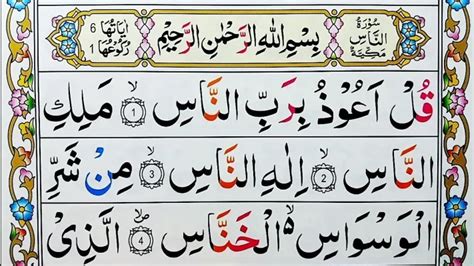 اٰيَاتُهَا 6 رُكُوْعُهَا 1 بِسْمِ اللهِ الرَّحْمٰنِ الرَّحِيْمِ سُوْرَةُ النَّاسِ مَكِّيَّةٌ
قُلْ اَعُوْذُ بِرَبِّ النَّاسِ ۙ‏ 1 مَلِكِ
النَّاسِ ۙ 2 اِلٰهِ النَّاسِ ۙ 3 مِنْ شَرِّ
الْوَسْوَاسِ ۙ الْخَنَّاسِ ۪ۙ 4 الَّذِىْ